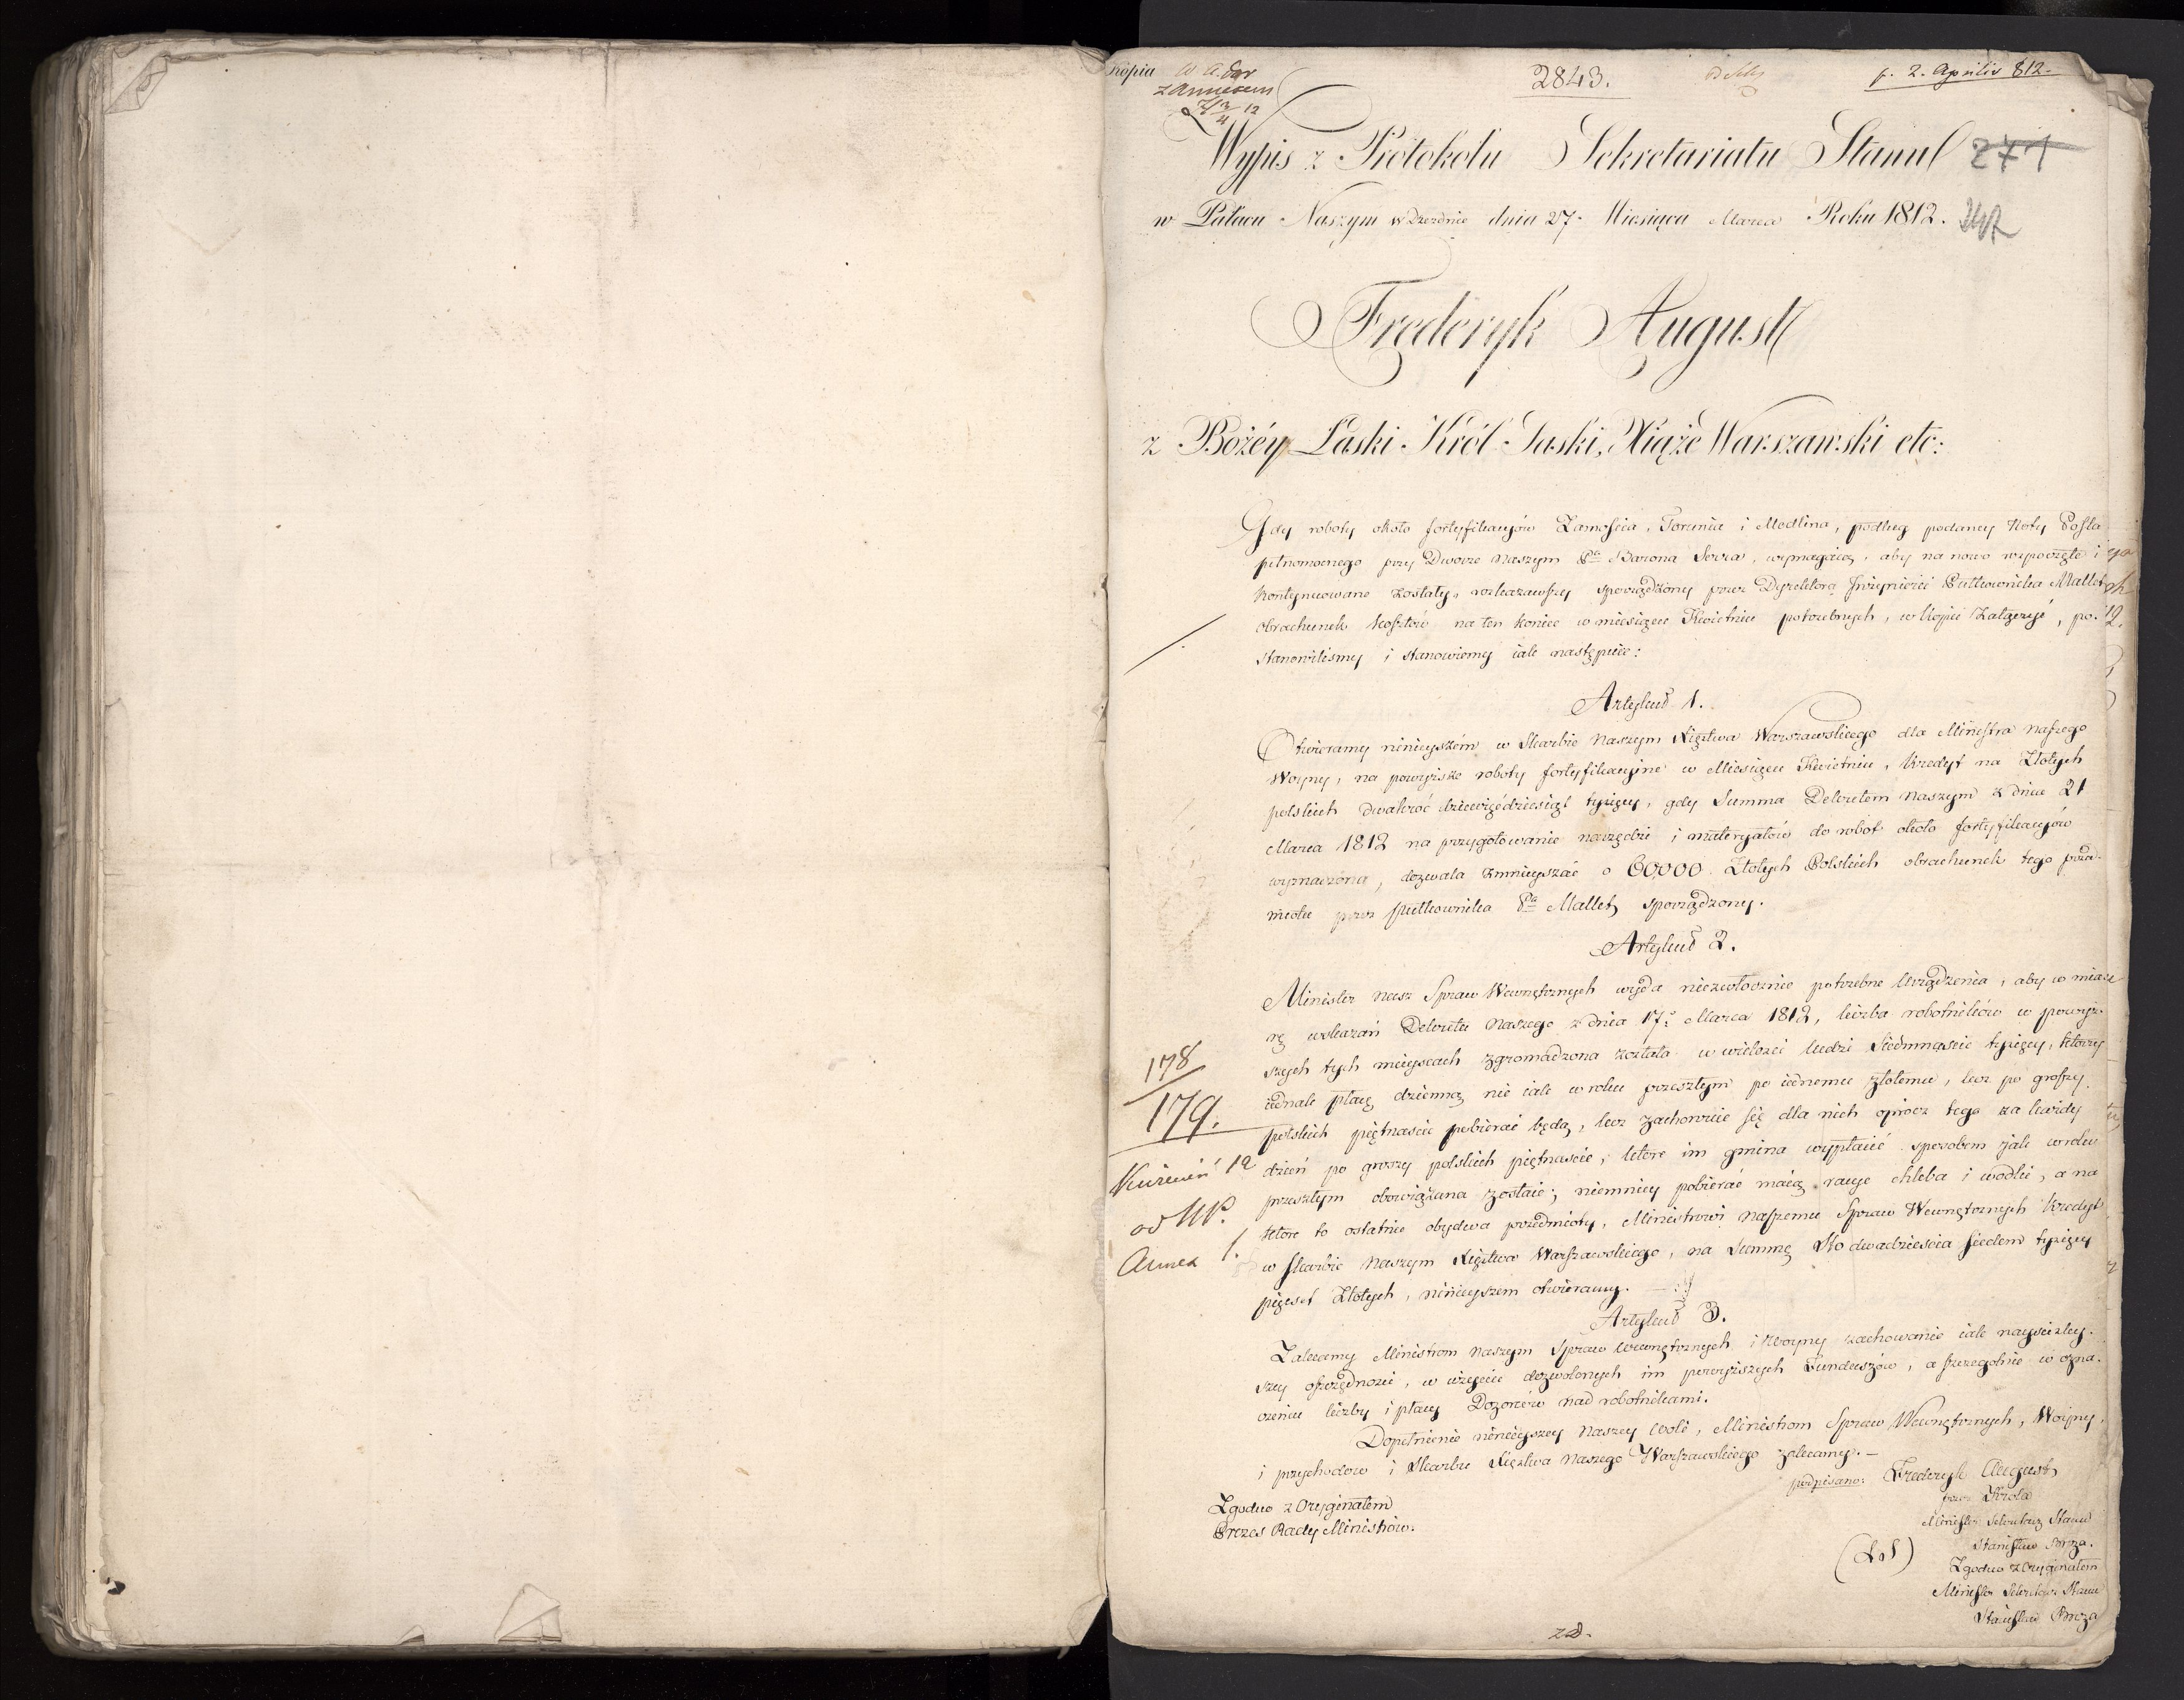 Kopia
z Annexem
2843.
p. 2. Aprilis 812.
Wypis z Protokołu Sekretariatu Stanu
271
w Pałacu Naszym w Dreznie dnia 27. Miesiąca Marca Roku 1812.
Frederyk August
z Bożéy Łaski Król Saski, Xiążę Warszawski etc:
Gdy roboty około fortyfikacyów Zamościa, Torunia i Modlina, podług podaney Noty Posła
pełnomocnego przy Dworze Naszym Pa Barona Serra, wymagaią, aby na nowo rozpoczęte i
kontynuowane zostały, rozkazawszy sporządzony przez Dyrektora Inżynierii Pułkownika Mallet
obrachunek kosztów na ten koniec w miesiącu Kwietniu potrzebnych, w kopii załączyć, po-
stanowiliśmy i stanowiemy iak następuie:
Artykuł 1.
Otwieramy ninieyszém w Skarbie Naszym Xięstwa Warszawskiego dla Ministra naszego
Woyny, na powyższe roboty fortyfikacyine w Miesiącu Kwietniu, kredyt na Złotych
polskich dwakroć dziewięćdziesiąt tysięcy, gdy Summa Dekretem Naszym z dnia 21
Marca 1812 na przygotowanie narzędzi i materyałów do robot około fortyfikacyów
wyznaczona, dozwala zmnieyszać o 60,000 Złotych Polskich obrachunek tego przed-
miotu przez Pułkownika Pa Mallet sporządzony.
Artykuł 2.
Minister nasz Spraw Wewnętrznych wyda niezwłocznie potrzebne Urządzenia, aby w mia-
rę wskazań Dekretu Naszego z dnia 17. Marca 1812, liczba robotników w powyż-
szych tych mieyscach zgromadzona została w wielości ludzi Siedmnaście tysięcy, którzy
iednak płacę dzienną nie iak w roku przeszłym po iednemu złotemu, lecz po groszy
polskich piętnaście pobierać będą, lecz zachowuie się dla nich oprócz tego za każdy
dzień po groszy polskich piętnaście, które im gmina wypłacić sposobem iak w roku
przeszłym obowiązana zostaie; niemniey pobierać maią racye chleba i wodki, a na
które to ostatnie obydwa przedmioty, Ministrowi naszemu Spraw Wewnętrznych kredyt
w Skarbie Naszym Xięstwa Warszawskiego, na Summę Sto dwadzieścia siedem tysięcy
pięćset Złotych, ninieyszem otwieramy.
178
179.
Kwiecień 12
od MP.
Annex 1.
Artykuł 3.
Zalecamy Ministrom naszym Spraw Wewnętrznych i Woyny zachowanie iak nayściśley-
szey oszczędności, w użyciu dozwolonych im powyższych Funduszów, a szczególnie w ozna-
czeniu liczby i płacy Dozorców nad robotnikami.
Dopełnienie ninieyszey Naszey Woli, Ministrom Spraw Wewnętrznych, Woyny,
i przychodów i Skarbu Xięstwa Naszego Warszawskiego zalecamy.
podpisano: Frederyk August
przez Króla
Minister Sekretarz Stanu
Stanisław Breza.
Zgodno z Oryginałem
Prezes Rady Ministrów.
(L.S.)
Zgodno z Oryginałem
Minister Sekretarz Stanu
Stanisław Breza